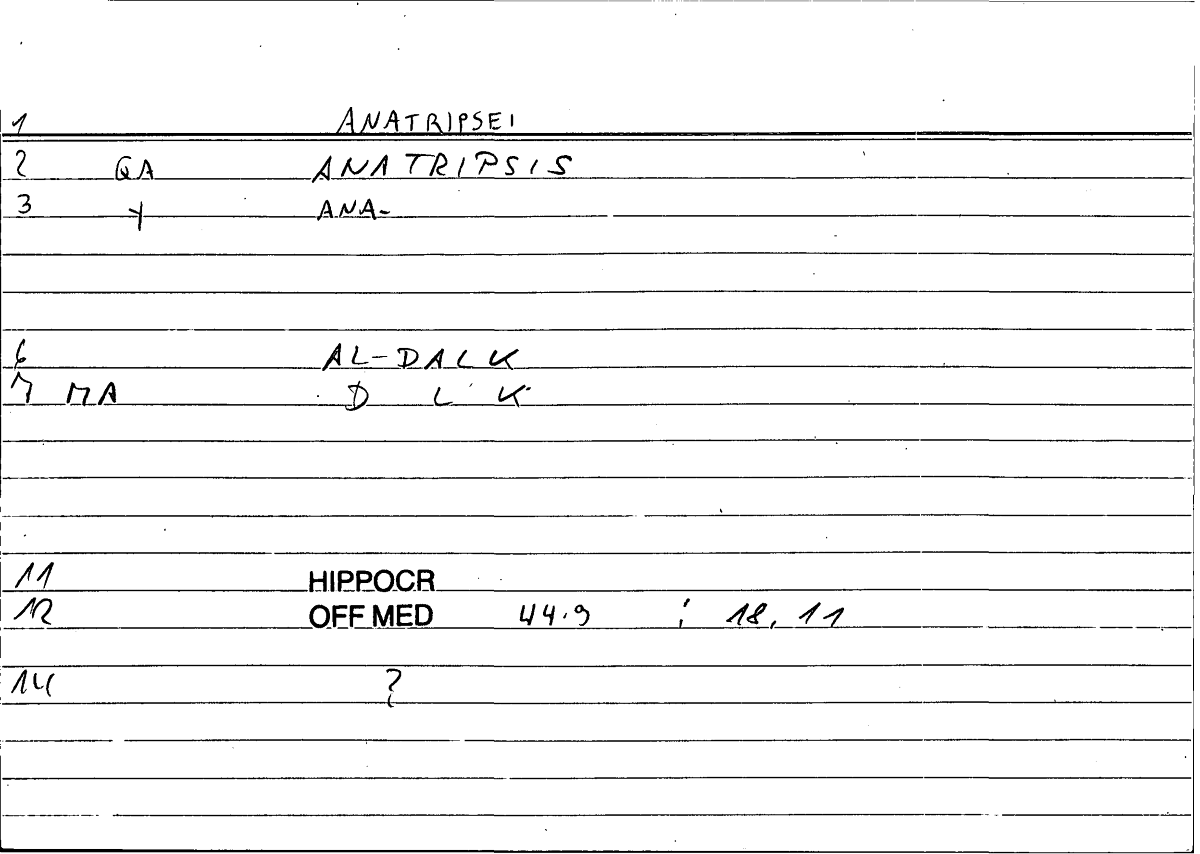 1 ANATRIPSEI
2 QA ANATRIPSIS
3 Y ANA-
6 AL-DALK
7 MA D L K
11 HIPPOCR
12 OFF MED 44.9 ; 18, 11
14 ?